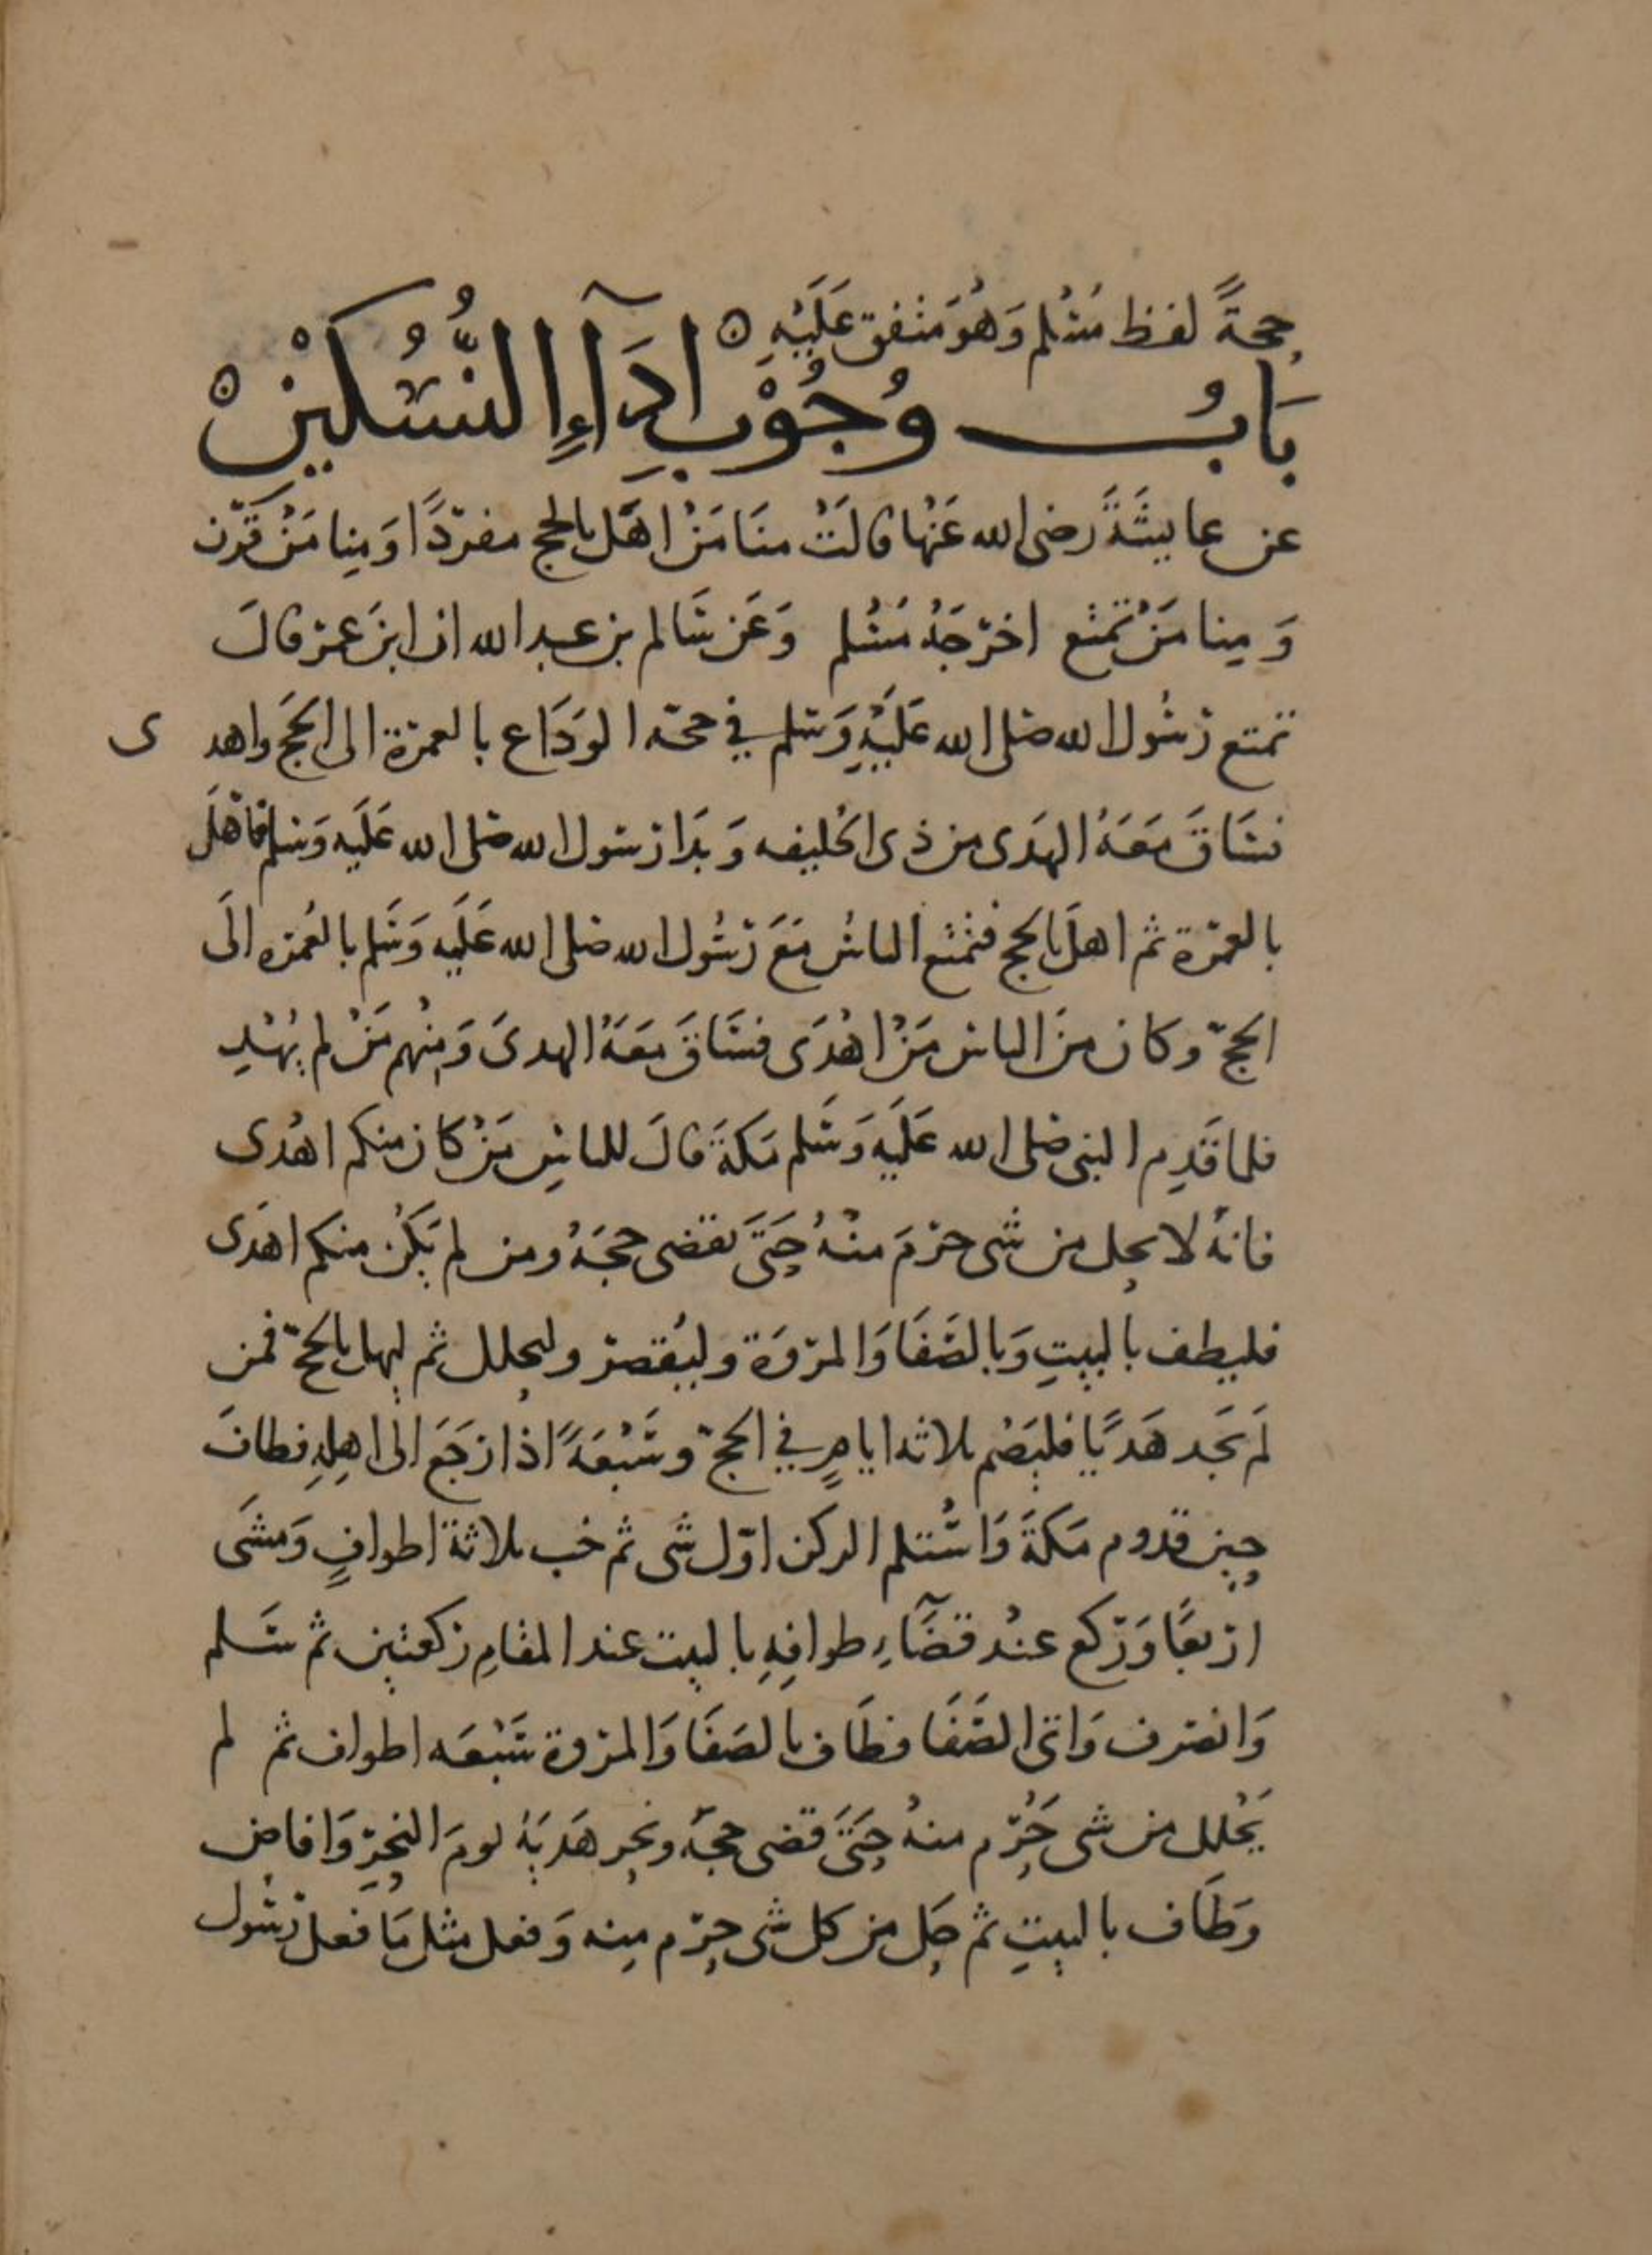 حجةً لفظ مُسْلم وَهُوَ متفق عَلَيْهِ ه
بَابُ وُجُوْبِ ادَآءِ النُّسُكَيْنْ ه
عن عايشَةَ رضى الله عَنْها قالَتْ منَا مَنْ اهَّل بالحج مفردًا وَمِنا مَنْ قَرَن
وَمِنا مَنْ تمتع اخرَجَهُ مُسْلم وَعَن سَالم بن عبد الله ان ابنَ عمر قالَ
تمتع رسُول الله صلى الله عَلَيْهِ وَسلم في حجة الوَدَاع بالعمرة الى الحَجَ واهد
ى
فسَاقَ مَعَهُ الهَدى من ذى الحليفه وَبَدَا رسول الله صلى الله عَلَيه وَسلم فاهَلَّ
بالعمرة ثم اهلَ بالحج فتمتع الناسُ مَعَ رسُول الله صلى الله عَلَيه وَسَلم بالعُمره الَى
الحجّ وكان منَ الناس مَنْ اهْدَى فسَاقَ مَعَهُ الهدىَ وَمنْهم مَنْ لم يُهْدِ
فلما قَدِم النبى صلى الله عَلَيه وَسَلم مَكةَ قالَ للناسِ مَنْ كان منكم اهْدى
فانهُ لا يحل من شى حرمَ منْهُ حَتىَّ يقضى حجَهُ ومن لم يَكُن منكم اهدَى
فليطف بالبيتِ وَبالصَفَا وَالمروَة وليُقصر وليحلل ثم ليهل بالحجّ فمن
لَم يَجد هَديًا فليَصُم ثلاثه ايامٍ في الحجّ وسَبْعَةً اذا رَجَعَ الى اهِلهِ فطافَ
حين قدوم مَكةَ وَاسْتلم الركن اوّل شى ثم خب ثلاثة اطوافٍ وَمشَى
اربعًا وَركع عندْ قضَآءِ طوافِهِ بالبيت عند المقامِ ركعتين ثم سَلم
وَانصرف وَاتى الصَّفَا فطَاف بالصَفَا وَالمروة سَبْعَه اطواف ثم لم
يَحْلل من شى حَرُم منهُ حَتىَّ قضى حجَهُ ونحر هَديَهُ يومَ النحرِ وَافاض
وَطَاف بالبيتِ ثم حَل من كل شى حرم مِنه وَفعل مثل مَا فعل رسُول